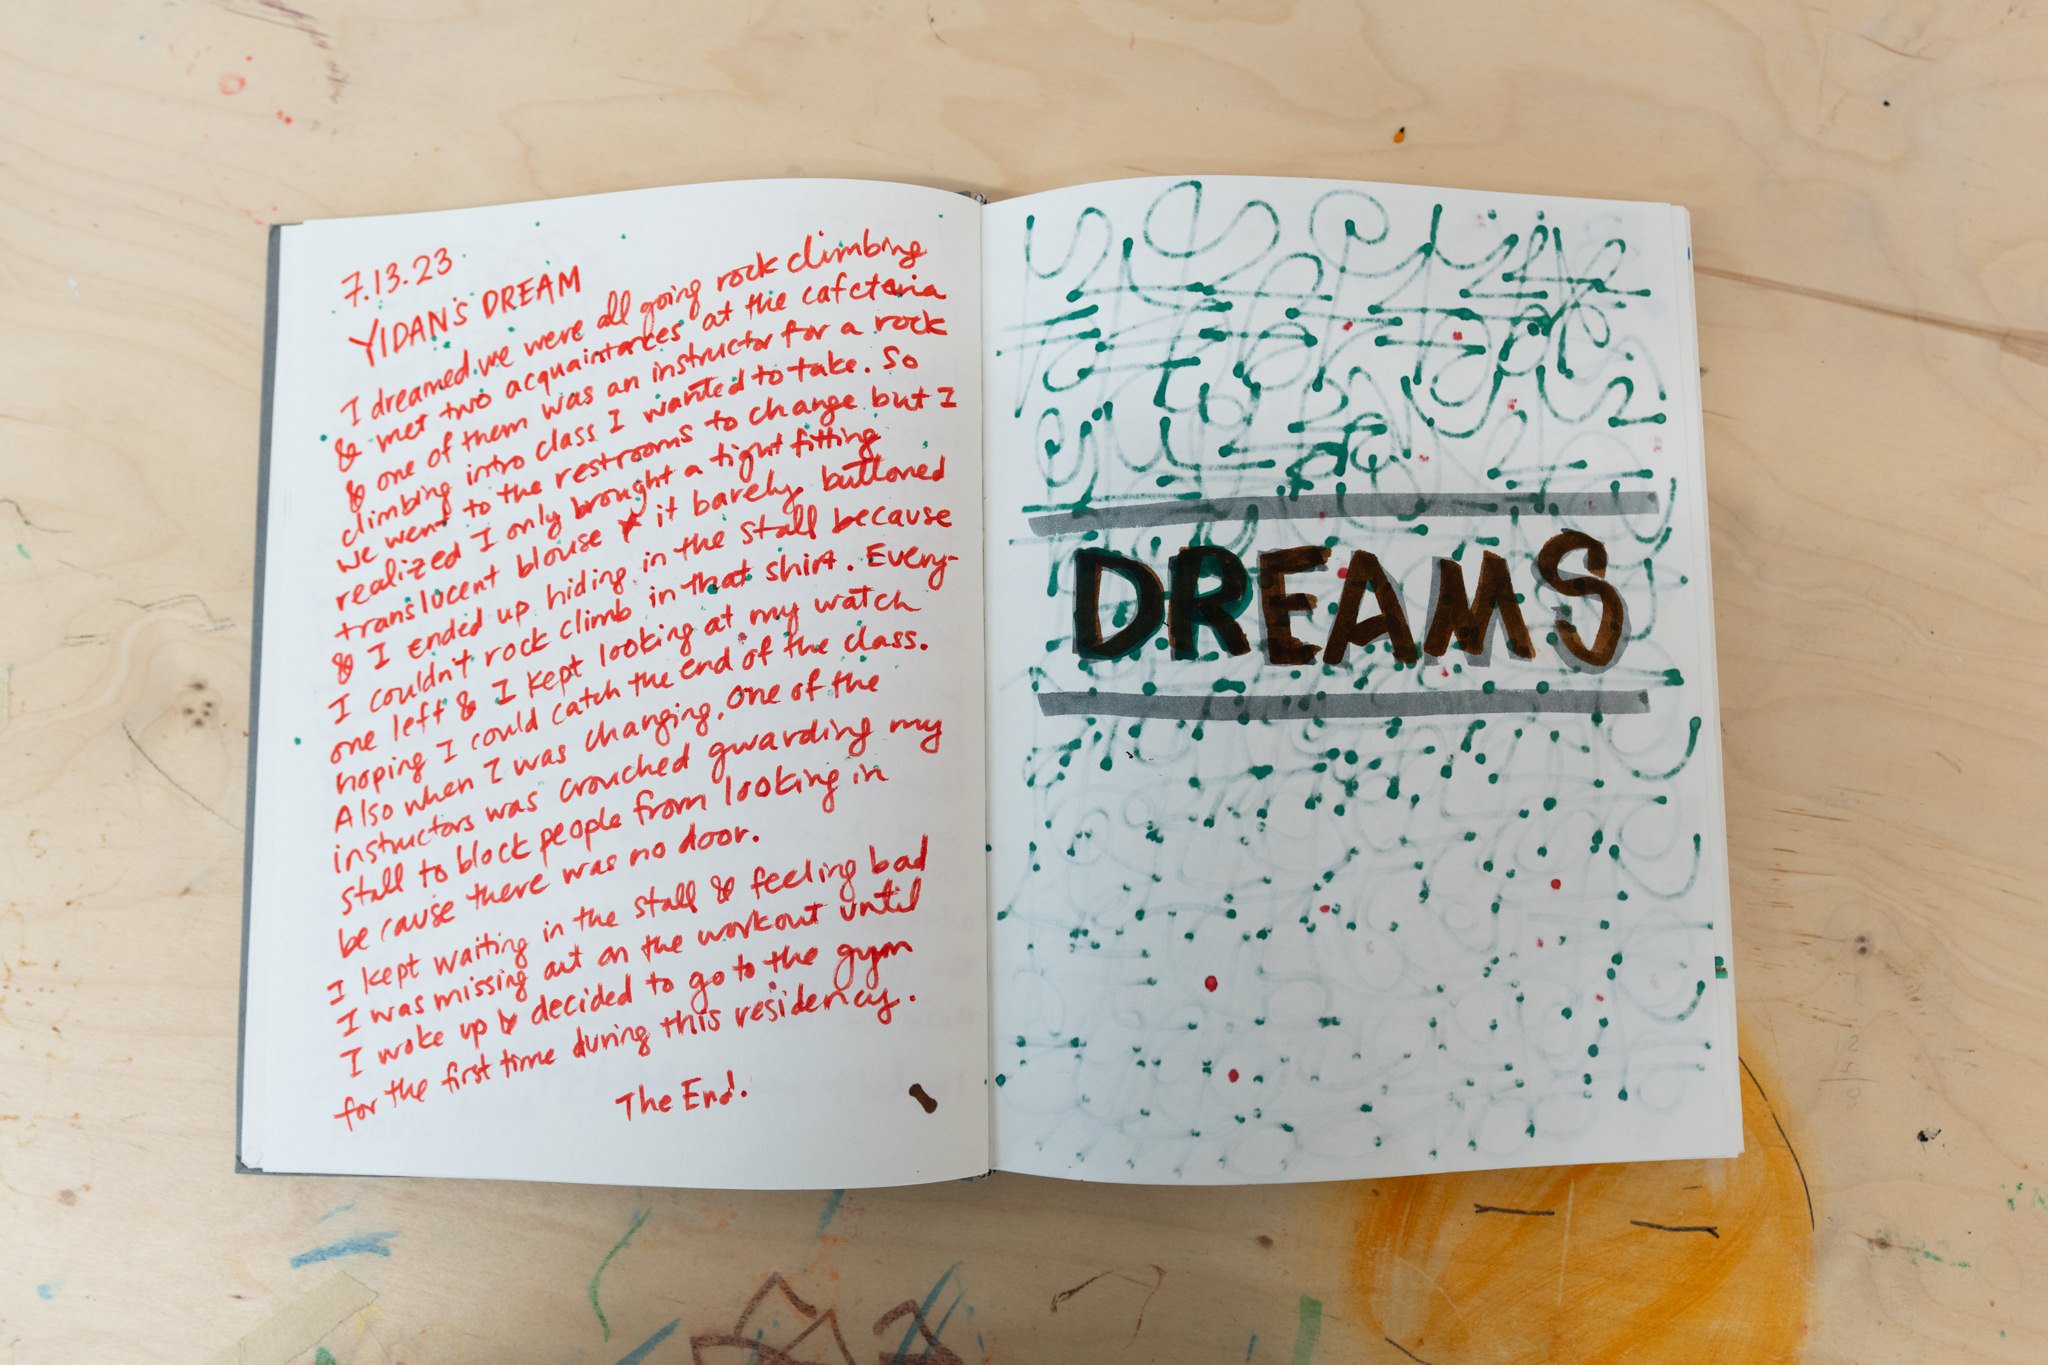 7.13.23
YIDAN'S DREAM
I dreamed we were all going rock climbing
& met two acquaintances at the cafeteria
& one of them was an instructor for a rock
climbing intro class I wanted to take. So
we went to the restrooms to change but I
realized I only brought a tight fitting
translucent blouse & it barely buttoned
& I ended up hiding in the stall because
I couldn't rock climb in that shirt. Every-
one left & I kept looking at my watch
hoping I could catch the end of the class.
Also when I was changing, one of the
instructors was crouched gwarding my
stall to block people from looking in
because there was no door.
I kept waiting in the stall & feeling bad
I was missing out on the workout until
I woke up & decided to go to the gym
for the first time during this residency.
The End!
DREAMS